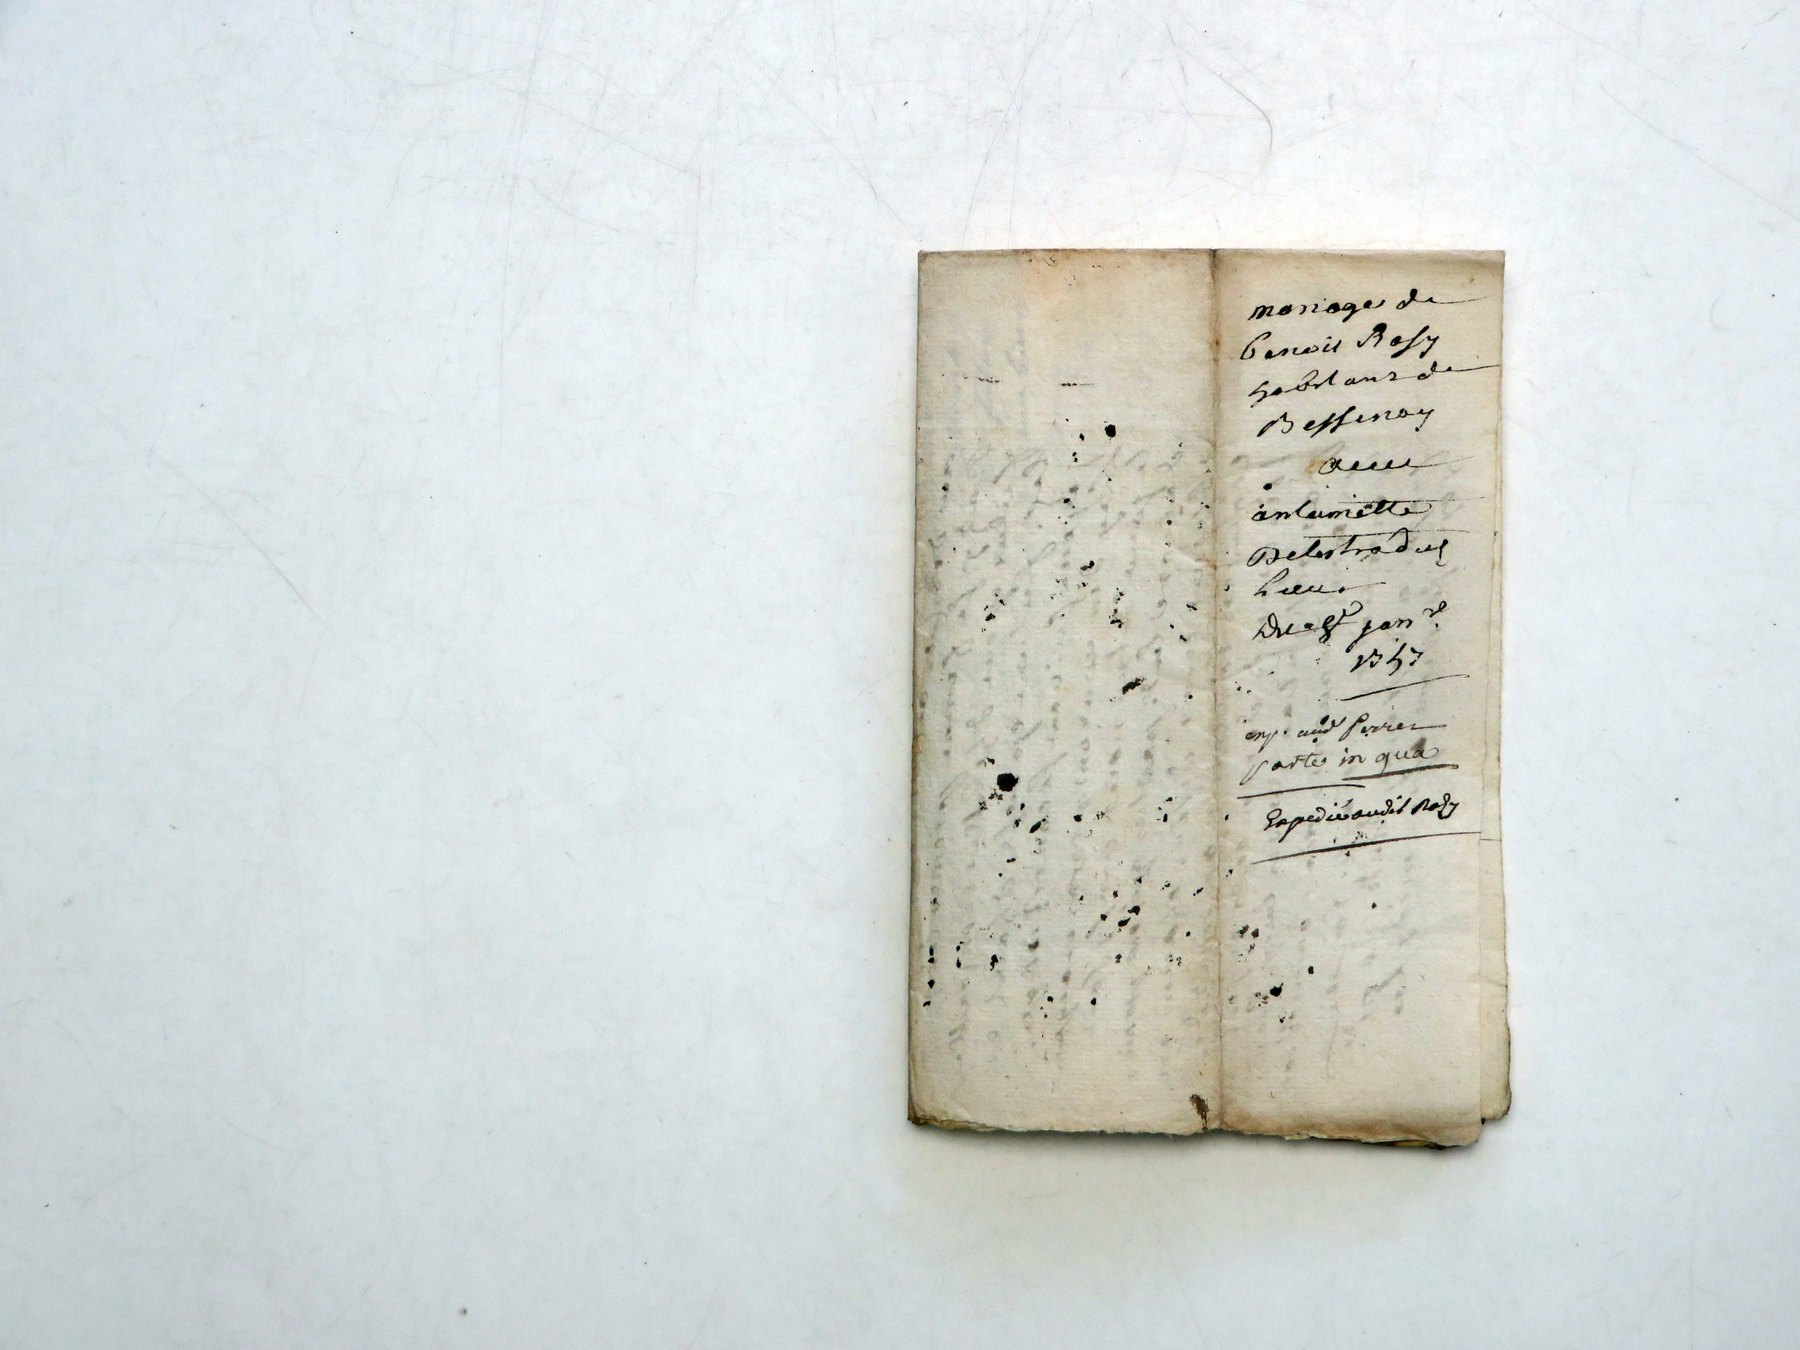 mariage de
benoit Rosy
habitant de
Bessenay
avec
antoinette
Delestra dud
lieu
Du janv.
1747
exp. aud
parte in qua
Expedié audit Rosy